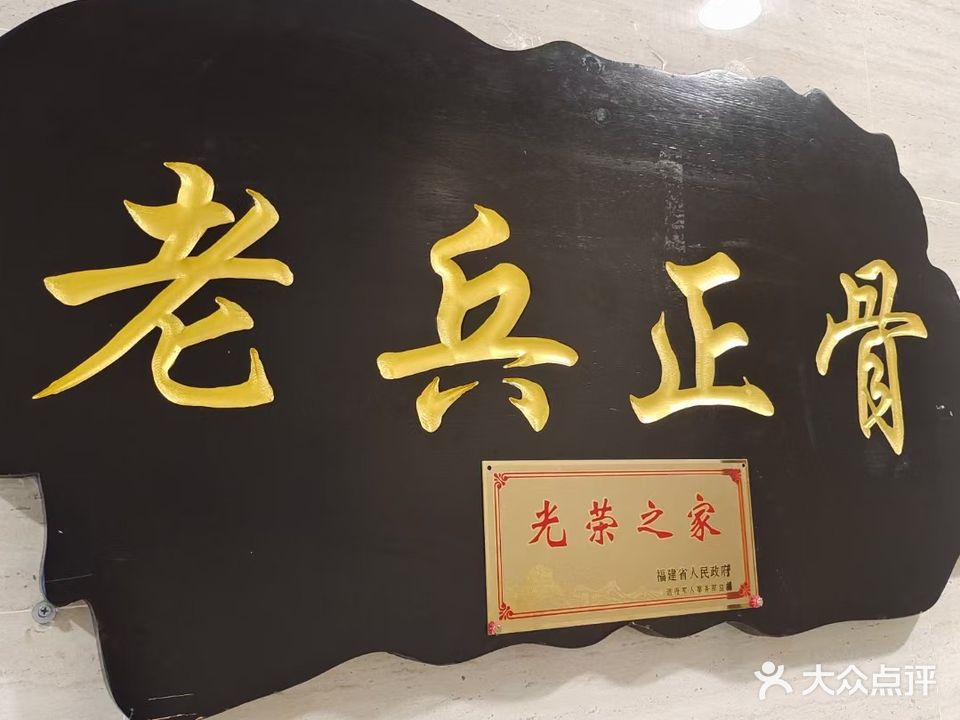 老兵正骨
光荣之家
福建省人民政府
大众点评